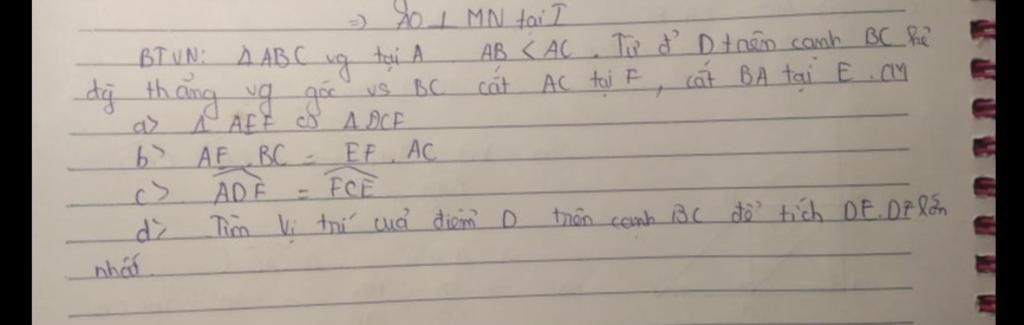 => AO ⊥ MN tại I
BTVN: Δ ABC vg tại A AB < AC. Từ đ' D trên cạnh BC kẻ
đg thẳng vg góc vs BC cắt AC tại F, cắt BA tại E. CM
a> Δ AEF cs Δ DCF
b> AF. BC = EF. AC
c> \widehat{ADF} = \widehat{FCE}
d> Tìm vị trí của điểm D trên cạnh BC để tích DE.DF lớn
nhất